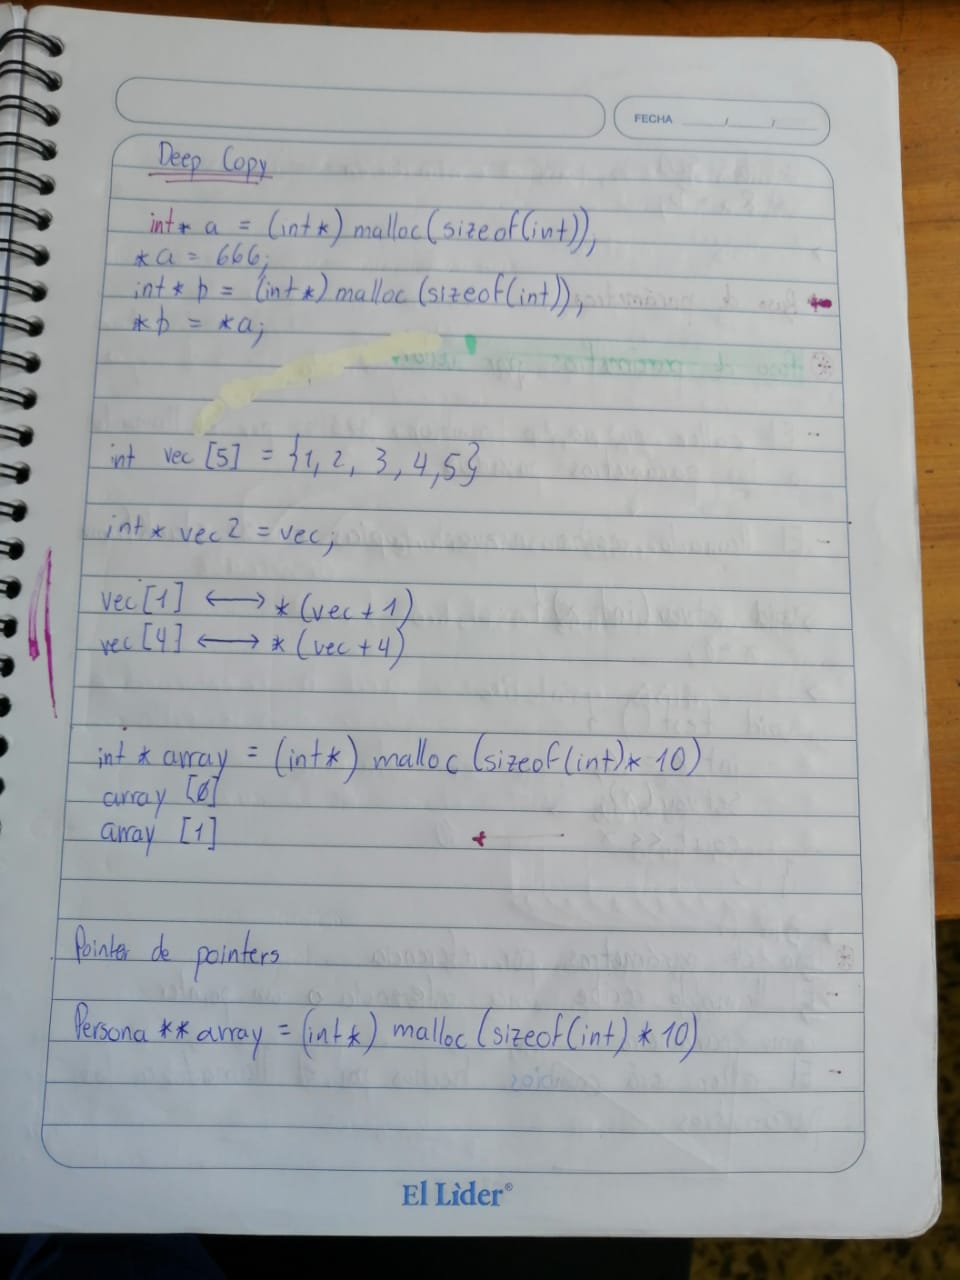 FECHA
Deep Copy
int* a = (int*) malloc(sizeof(int));
*a = 666;
int* b = (int*) malloc(sizeof(int));
*b = *a;
int vec [5] = {1, 2, 3, 4, 5}
int* vec2 = vec;
vec[1] ⟷ *(vec+1)
vec[4] ⟷ *(vec+4)
int * array = (int*) malloc (sizeof(int)* 10)
array [0]
array [1]
Pointer de pointers
Persona ** array = (int*) malloc (sizeof(int) * 10)
El Lìder®